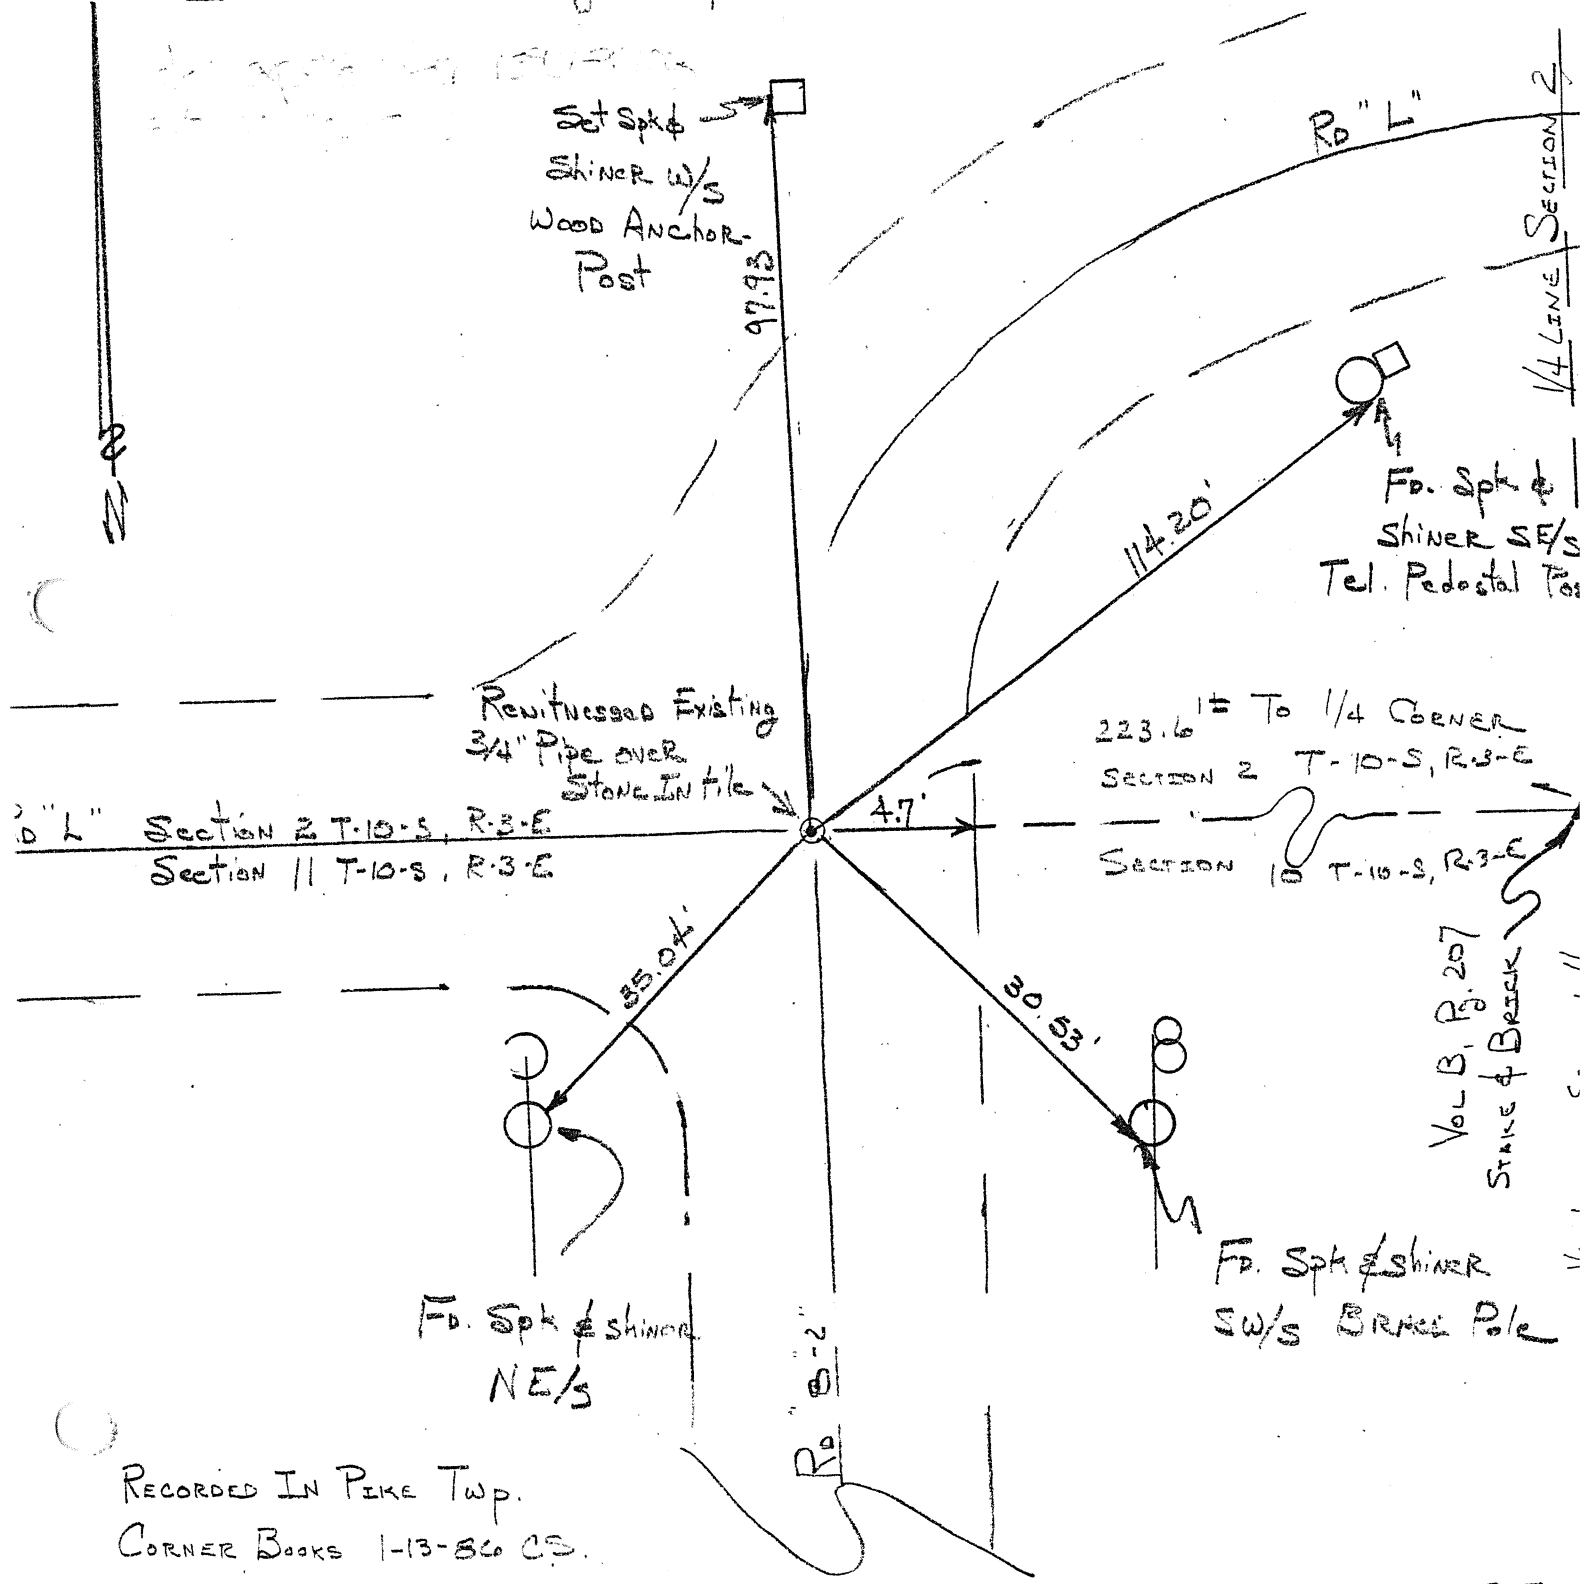 Set Spk &
Shiner W/S
Wood Anchor-
Post
97.93
Rd "L"
1/4 Line Section 2
114.20'
Fd. Spk &
Shiner SE/S
Tel. Pedostal
N
Rewitnessed Existing
3/4" Pipe over
Stone In tile
223.6'± To 1/4 Corner
Section 2 T-10-S, R-3-E
"L" Section 2 T-10-S, R-3-E
4.7'
Section 11 T-10-S, R-3-E
Section 10 T-10-S, R-3-E
35.04'
30.53'
Vol B, Pg. 207
Stake & Brick
Fd. Spk & shiner
NE/S
Fd. Spk & shiner
SW/S Brace Pole
Rd "B-2"
Recorded In Pike Twp.
Corner Books 1-13-86 CS.